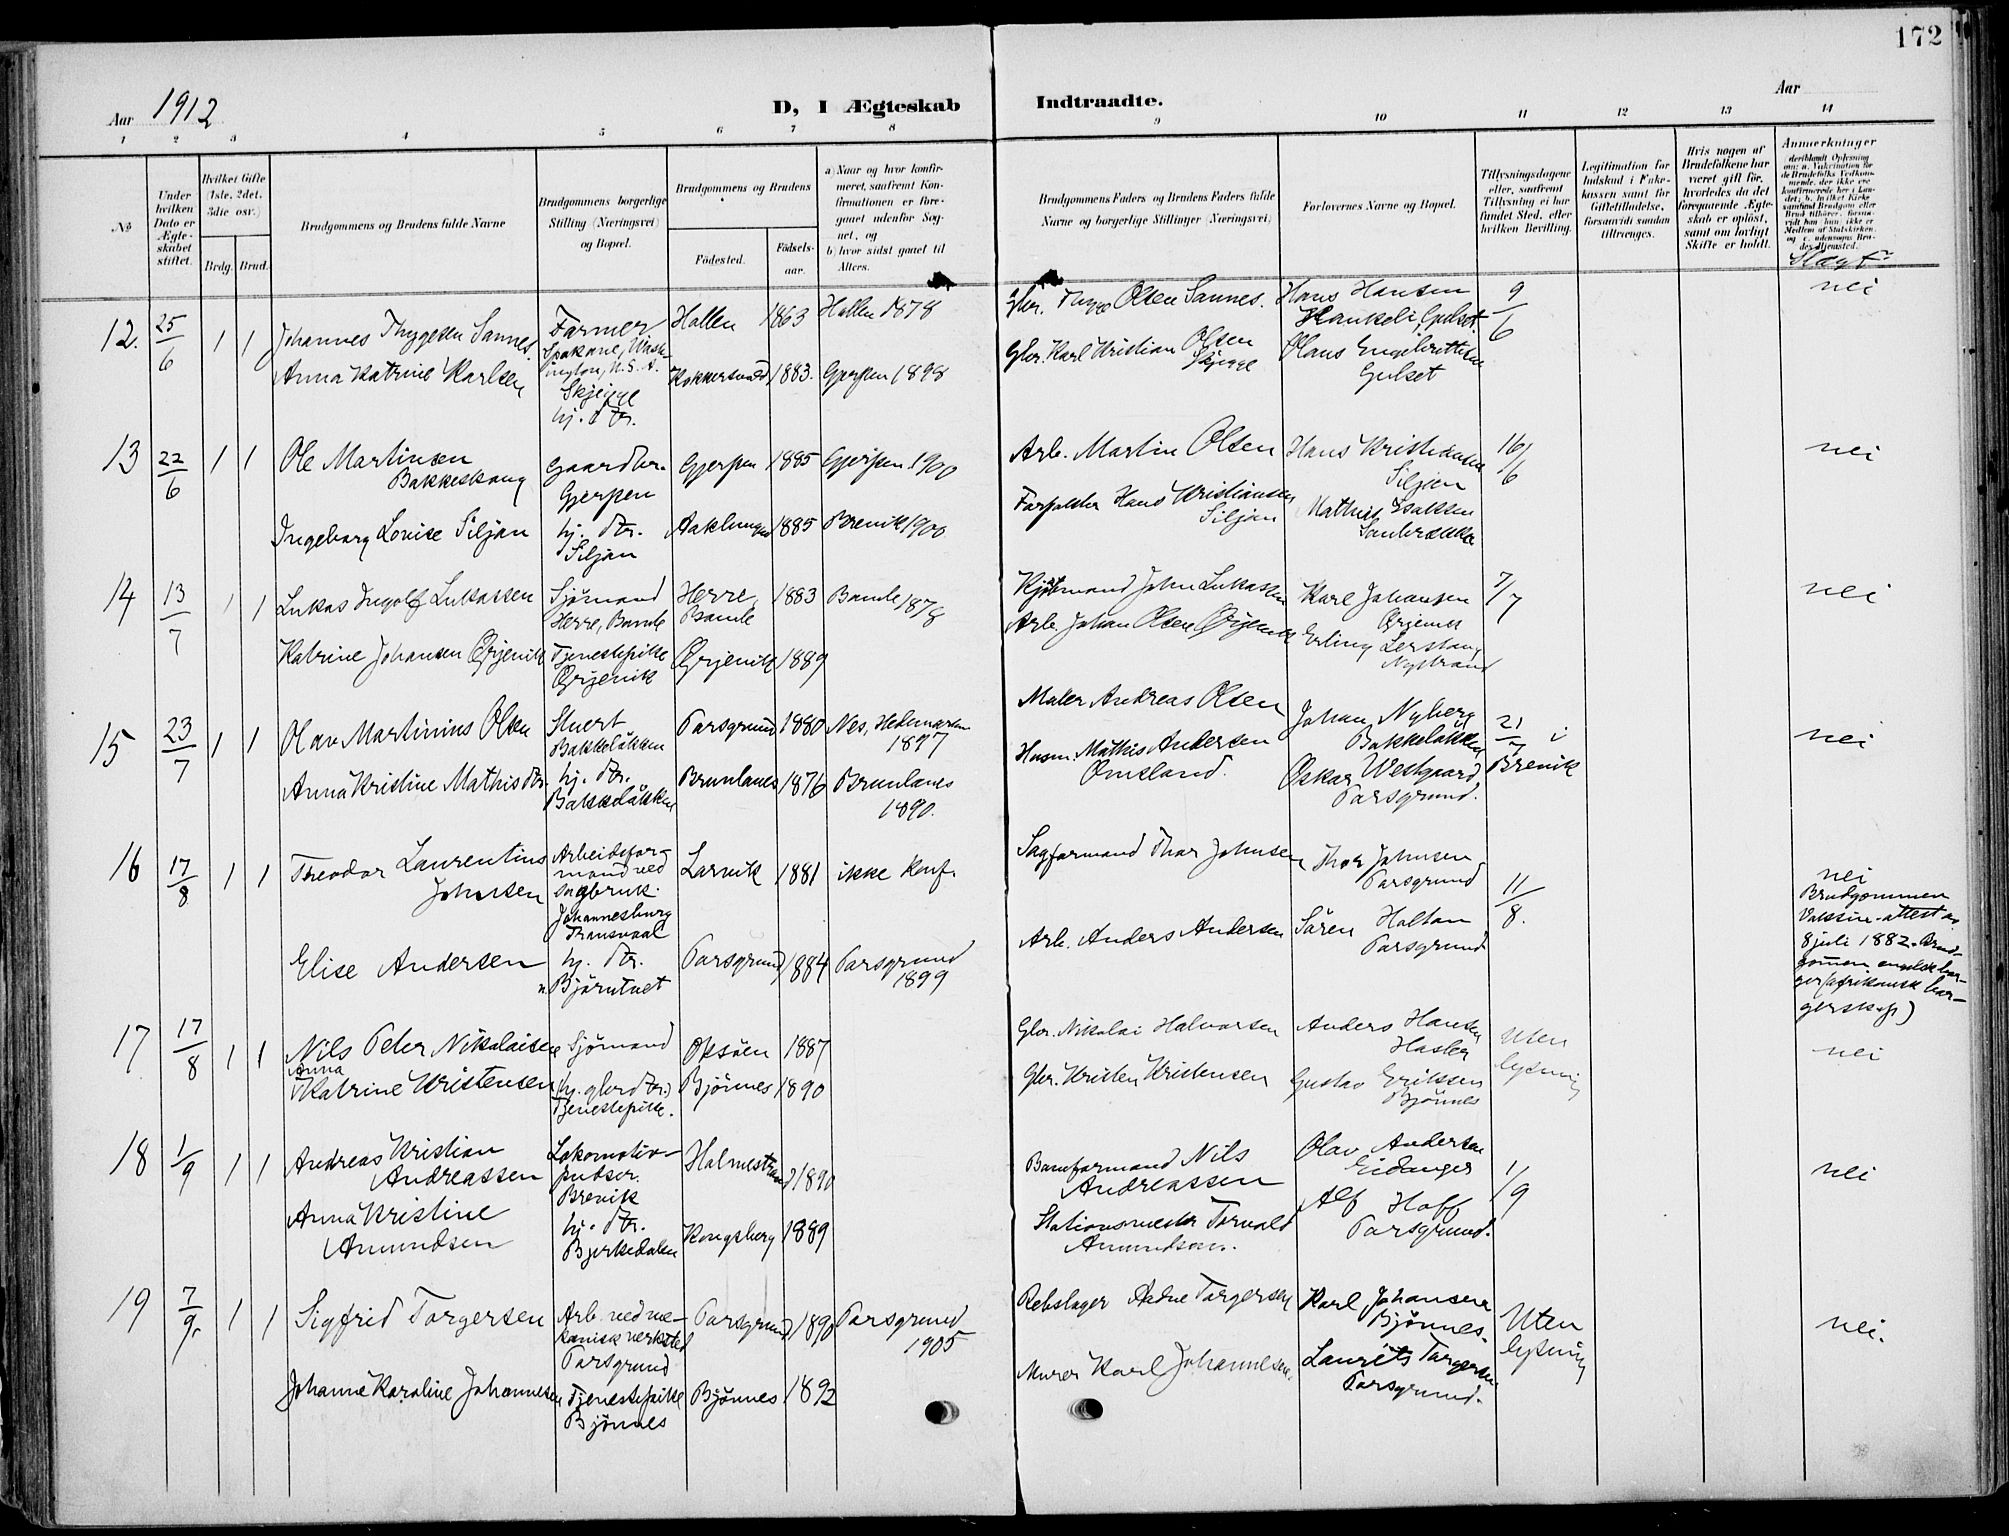 172
Aar 1912
D, I Ægteskab Indtraadte.
Aar
1 2 3 4 5 6 7 8 9 10 11 12 13 14
No
Under hvilken Dato er Ægteskabet stiftet.
Hvilket Gifte (1ste, 2det, 3die osv.)
Brdg. Brud.
Brudgommens og Brudens fulde Navne
Brudgommens borgerlige Stilling (Næringsvei) og Bopæl.
Brudgommens og Brudens
Fødested.
Fødselsaar.
a) Naar og hvor konfirmeret, saafremt Konfirmationen er foregaaet udenfor Sognet, og
b) hvor sidst gaaet til Alters.
Brudgommens Faders og Brudens Faders fulde Navne og borgerlige Stillinger (Næringsvei)
Forlovernes Navne og Bopæl.
Tillysningsdagene eller, saafremt Tillysning ei har fundet Sted, efter hvilken Bevilling.
Legitimation for Indskud i Enkekassen samt for Giftetilladelse, forsaavidt saadan tiltrænges.
Hvis nogen af Brudefolkene har været gift før, hvorledes da det foregaaende Ægteskab er opløst, samt om lovligt Skifte er holdt.
Anmerkninger
Slægt
12. 25/6 1 1 Johannes Thygesen Sannes. Farmer Spokane, Washington, U.S.A. Hollen 1863 Hollen 1878 Gbr. Olsen Sannes. Hans Hansen Gulset 9/6 nei
Anna Katrine Karlsen Skjeigge hj. dtr. 1883. Gjerpen 1898 Gbr. Karl Kristian Olsen Olaus Engebretsen Gulset
13 22/6 1 1 Ole Martinsen Bakkeskaug Gaardbr. Gjerpen Gjerpen 1885 Gjerpen 1900 Arb. Martin Olsen Hans Kristiansen Siljan 16/6 nei
Ingeborg Lovise Siljan hj. dtr. Siljan 1885 Brevik 1900 Hans Kristiansen Siljan Mathias Isaksen
14 13/7 1 1 Lukas Ingolf Lukassen Sjømand Herre, Bamle Herre, Bamle 1883 Bamle 1878 John Lukassen Karl Johansen Ørjevik 7/7 nei
Katrine Johansen Ørjevik Tjenestepike Ørjevik Ørjevik 1889 Arb. Johan Olsen Ørjevik Erling Lerstang Nystrand
15 23/7 1 1 Olav Martinius Olsen Stuert Bakkeløkken Porsgrund 1880 Nes, Hedemarken 1897 Maler Andreas Olsen Johan Nyberg Bakkeløkken 21/7 i Brevik nei
Anna Kristine Mathisdtr. hj. dtr. Bakkeløkken Brunlanes 1876 Brunlanes 1890. Husm. Mathis Andersen Omsland. Oskar Westgaard Porsgrund.
16 17/8 1 1 Theodor Laurentius Johnsen Arbeidsformand ved sagbruk. Johannesburg Transvaal Larvik 1881 ikke konf. Sagformand Thor Johnsen Thor Johnsen Porsgrund 11/8. nei
Brudgommen Vaksine-attest av 8 juli 1882. Brudgommen engelsk borger (afrikansk borgerskap)
Elise Andersen hj. dtr. n. Bjørntvet Porsgrund 1884 Porsgrund 1899 Arb. Anders Andersen Søren Holtan Porsgrund
17 17/8 1 1 Nils Peter Nikolaisen Sjømand 1887 Gbr. Nikolai Halvorsen Anders Hansen Hasler Uten lysning nei
Anna Katrine Kristensen (hj. gbrdtr.) Tjenestepike. Bjønnes 1890 Gbr. Kristen Kristensen Gustav Eriksen Bjønnes
18 1/9 1 1 Andreas Kristian Andreassen Lokomotivpudser. Brevik Holmestrand 1890 Baneformand Nils Andreassen Olav Andersen Eidanger 1/9 nei
Anna Kristine Amundsen hj. dtr. Bjerkedalen Kongsberg 1889 Stationsmester Torvald Amundsen. Alf Hoff Porsgrund.
19 7/9. 1 1 Sigfrid Torgersen Arb. ved mekanisk verksted Porsgrund Porsgrund 1890 Porsgrund 1905 Rebslager Torgersen Karl Johansen Bjønnes. Uten lysning nei.
Johanne Karoline Johannesen Tjenestepike Bjønnes Bjønnes 1892 Murer Karl Johannesen. Laurits Torgersen Porsgrund.